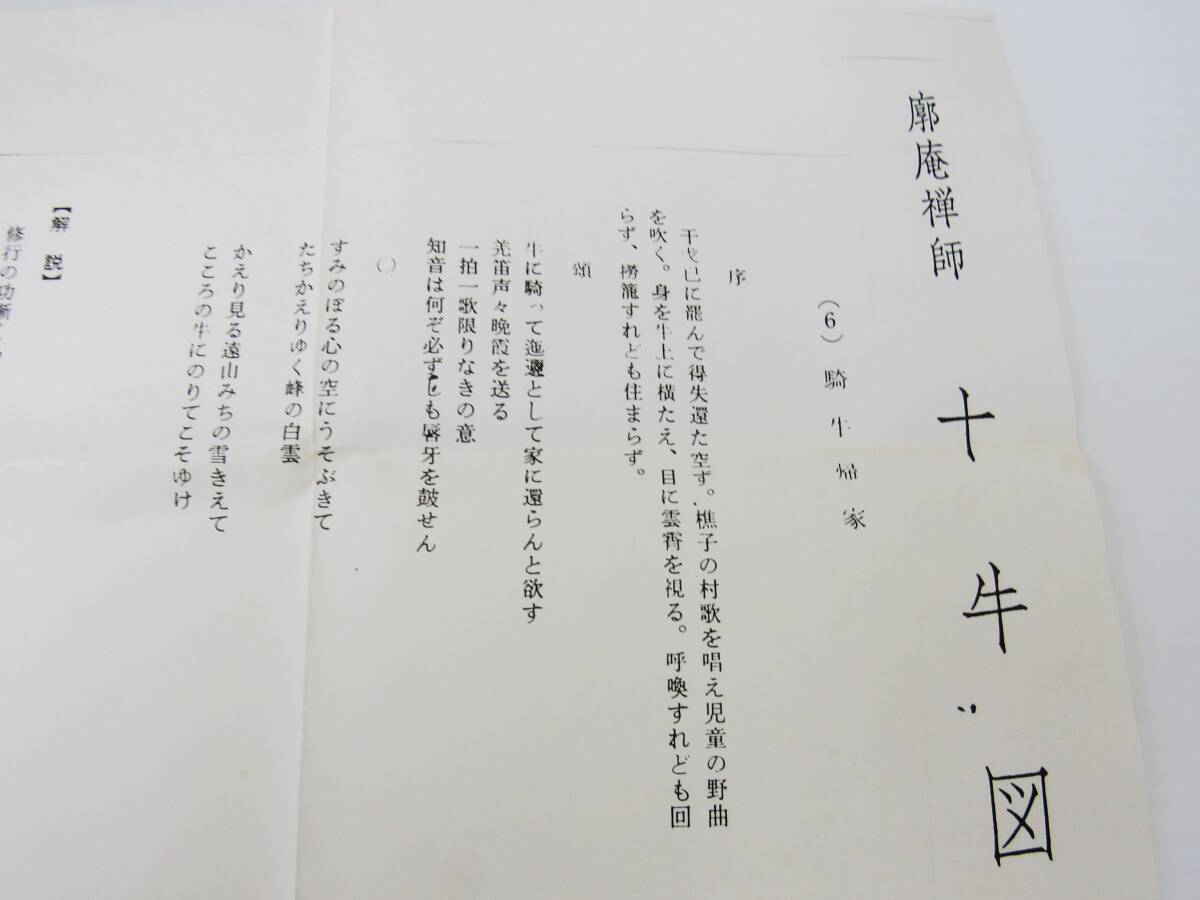 廓庵禅師 十牛図
(6) 騎牛帰家
序
干戈已に罷んで得失還た空ず。樵子の村歌を唱え児童の野曲
を吹く。身を牛上に横たえ、目に雲霄を視る。呼喚すれども回
らず、撈籠すれども住まらず。
頌
牛に騎って迤邐として家に還らんと欲す
羌笛声々晩霞を送る
一拍一歌限りなきの意
知音は何ぞ必ずしも唇牙を鼓せん
〇
すみのぼる心の空にうそぶきて
たちかえりゆく峰の白雲
かえり見る遠山みちの雪きえて
こころの牛にのりてこそゆけ
【解説】
修行の功漸く